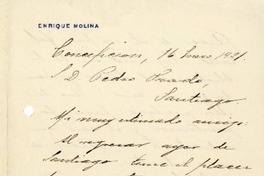 ENRIQUE MOLINA
Concepcion, 16 Enero 1921.
S. D. Pedro Prado,
Santiago.
Mi muy estimado amigo:
Al regresar ayer de
Santiago tuve el placer